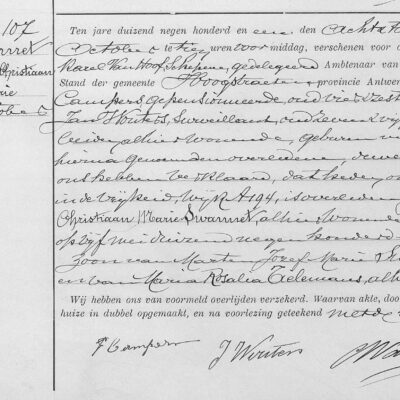 107
Ten jare duizend negen honderd en een den achtst
Swannet
October te tien uren voor middag, verschenen voor o
Christiaan
Karel Van Hoof, Schepene, gedelegeerd Ambtenaar van
Marie
Stand der gemeente Hoogstraeten, provincie Antwer
Campers gepensionneerde, oud vier en zest
Jan Wouters, Surveillant, oud
beiden alhier wonende, geburen
hierna genoemden overledene, dewe
ons hebben verklaard, dat heden
in de vrijheid, Wijk A 194, is overleden
Christiaan Marie Swannet, alhier wonen
op vijf mei duizend negen honderd
zoon van Martin Jozef Marie
en van Maria Rosalia Tielemans, alh
Wij hebben ons van voormeld overlijden verzekerd. Waarvan akte, door
huize in dubbel opgemaakt, en na voorlezing geteekend met de
F Campers
J Wouters